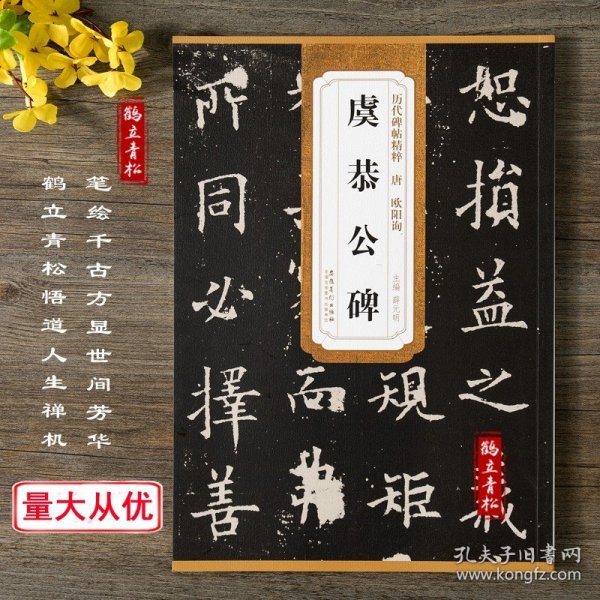 鹤立青松
笔绘千古方显世间芳华
鹤立青松悟道人生禅机
量大从优
历代碑帖精粹 唐 欧阳询
虞恭公碑
主编 薛元明
安徽美术出版社
恕损益之
规矩
所同必择善
鹤立青松
孔夫子旧书网
www.kongfz.com